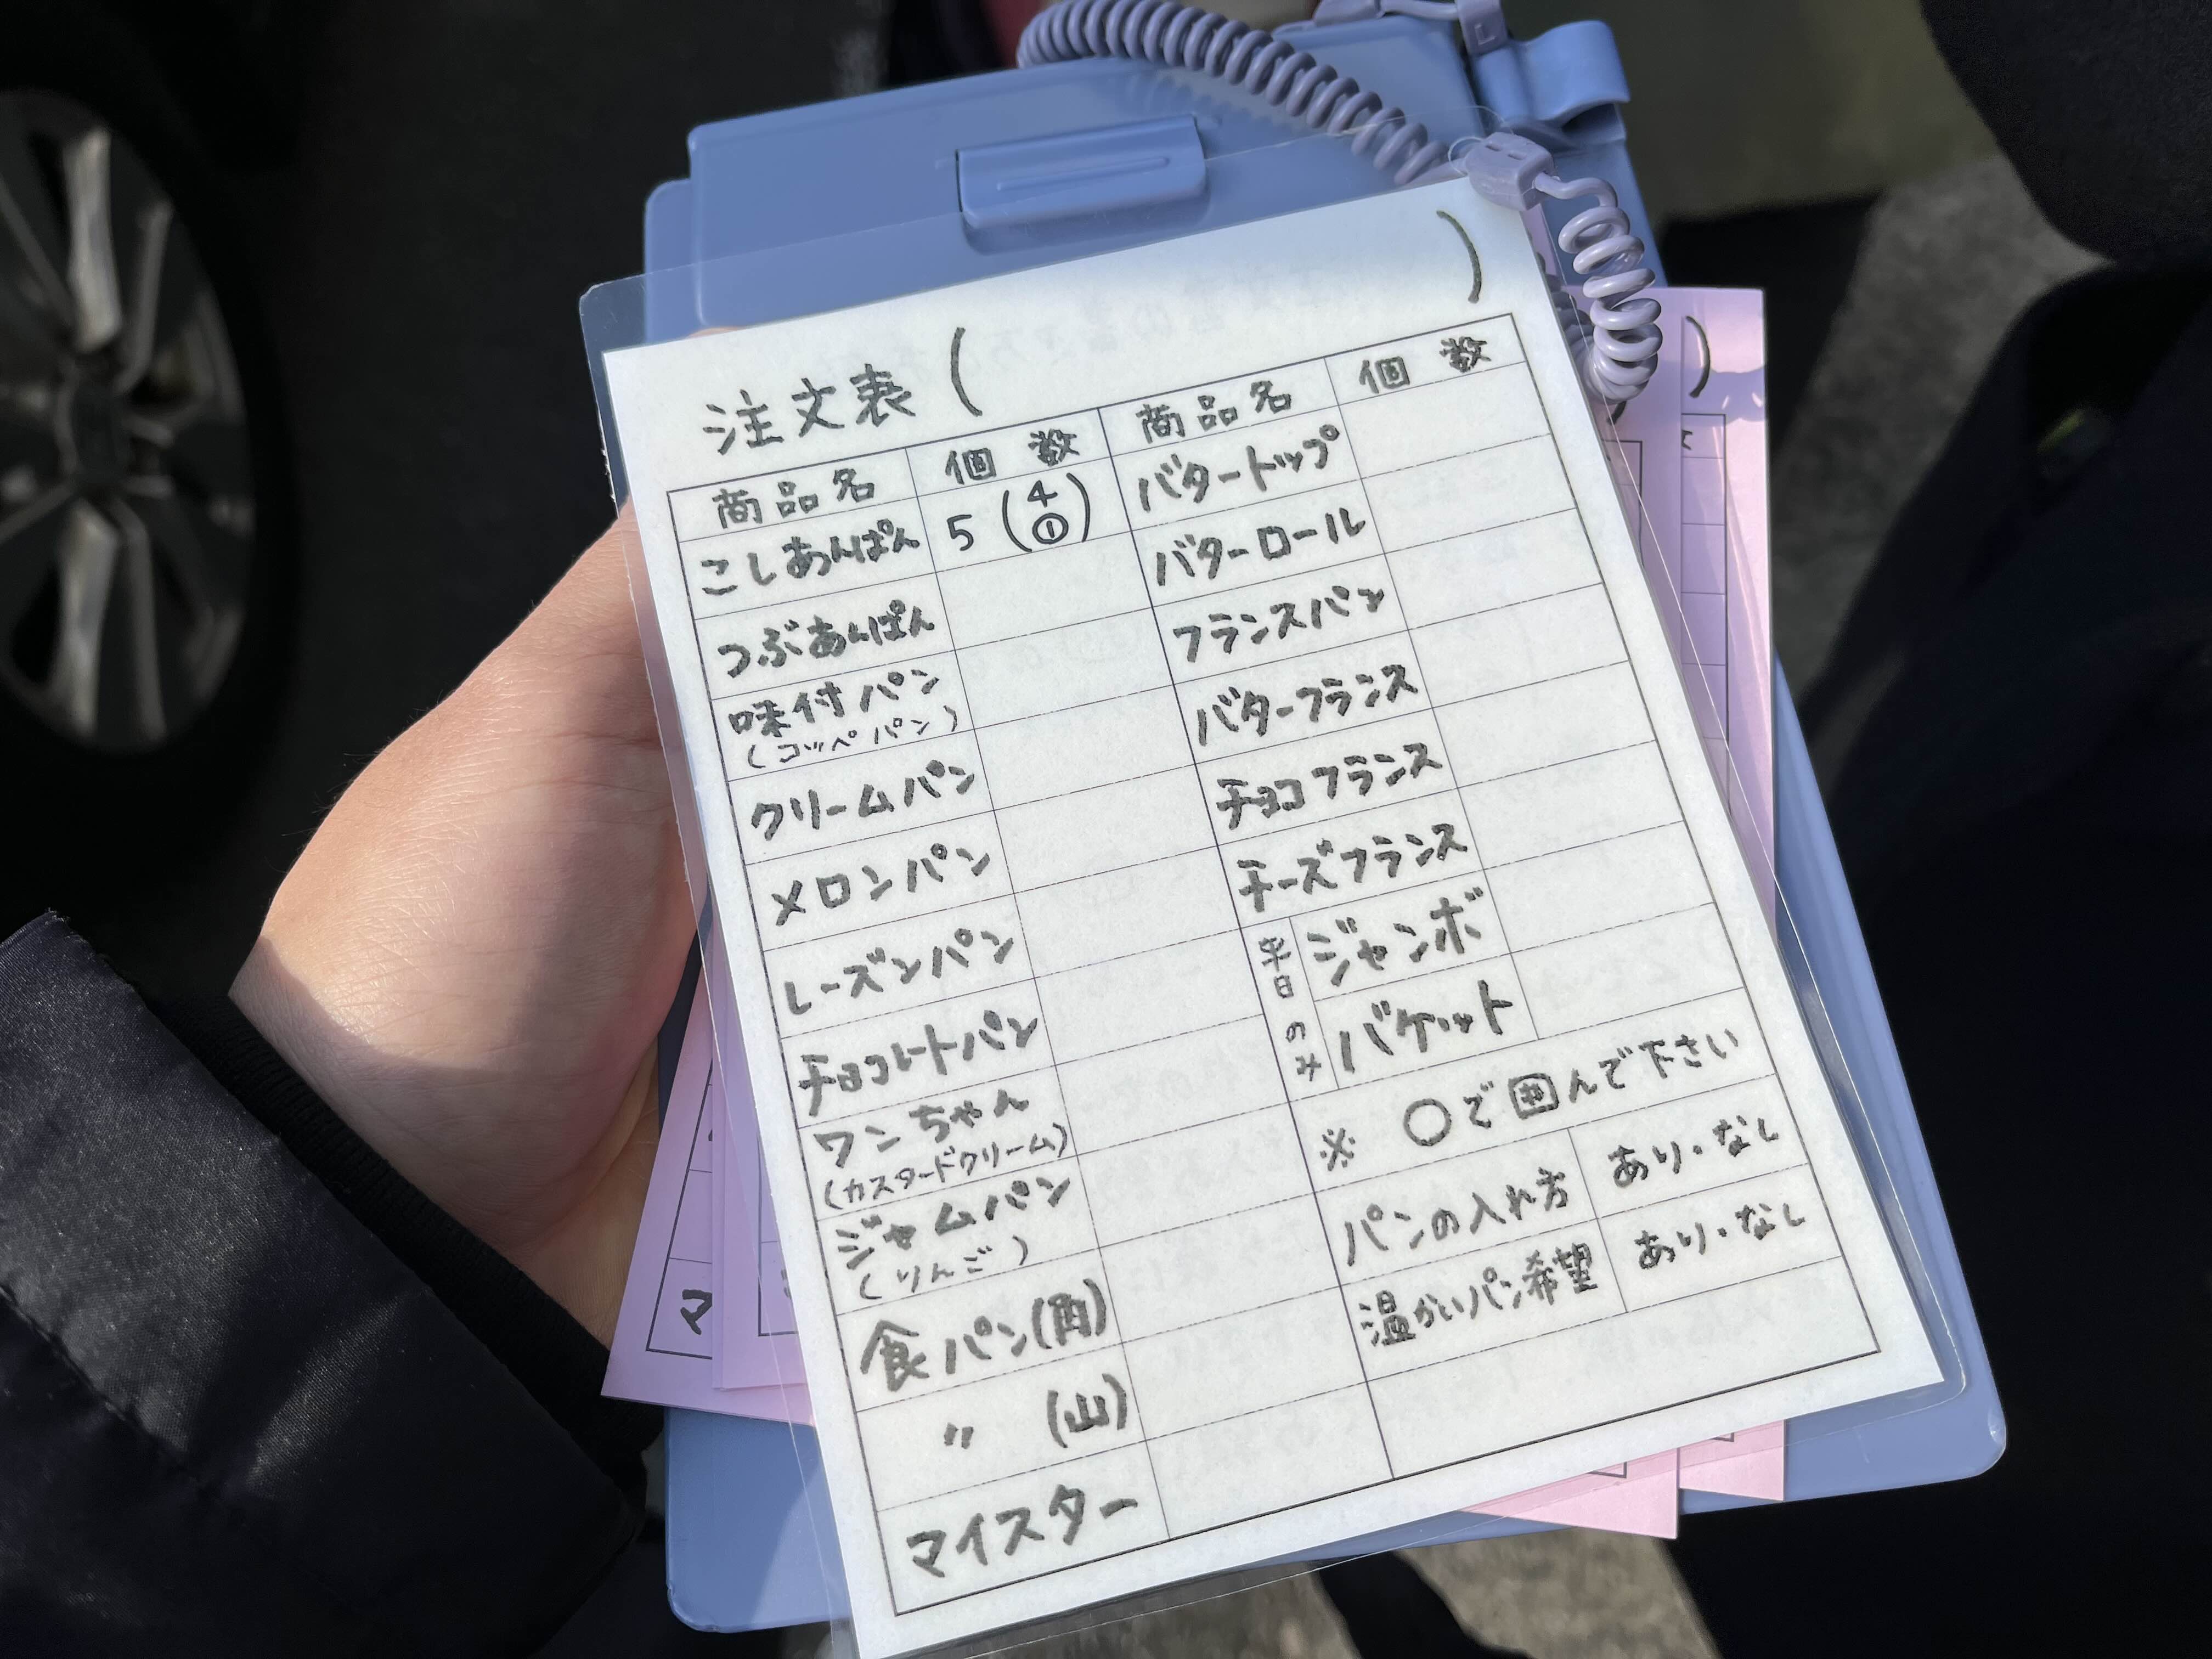 注文表 (　　　)
商品名　個数　商品名　個数
こしあんぱん　5 (4 ①)　バタートップ
つぶあんぱん　バターロール
味付パン　フランスパン
(コッペパン)
クリームパン　バターフランス
メロンパン　チョコフランス
レーズンパン　チーズフランス
チョコレートパン　平日のみ　ジャンボ
ワンちゃん　バゲット
(カスタードクリーム)
※　○で囲んで下さい
ジャムパン　パンの入れ方　あり・なし
(りんご)
食パン(角)　温かいパン希望　あり・なし
〃　(山)
マイスター
マ